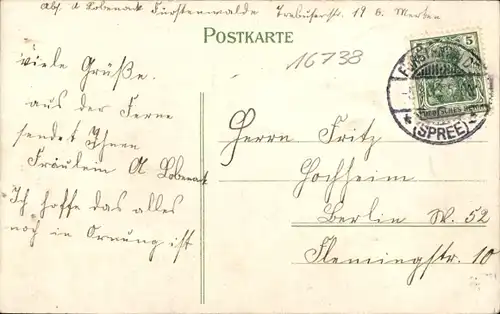 Abs. A Lobenack Fürstenwalde Trebuserstr. 19 b. Merten
POSTKARTE
16738
5
FÜRSTENWALDE
DEUTSCHES REICH
* (SPREE) *
viele Grüße.
aus der Ferne
sendet Ihnen
Fräulein A Lobenack
Ich hoffe das alles
noch in Ornung ist
Herrn Fritz
Hochheim
Berlin W. 52
Flemingstr. 10